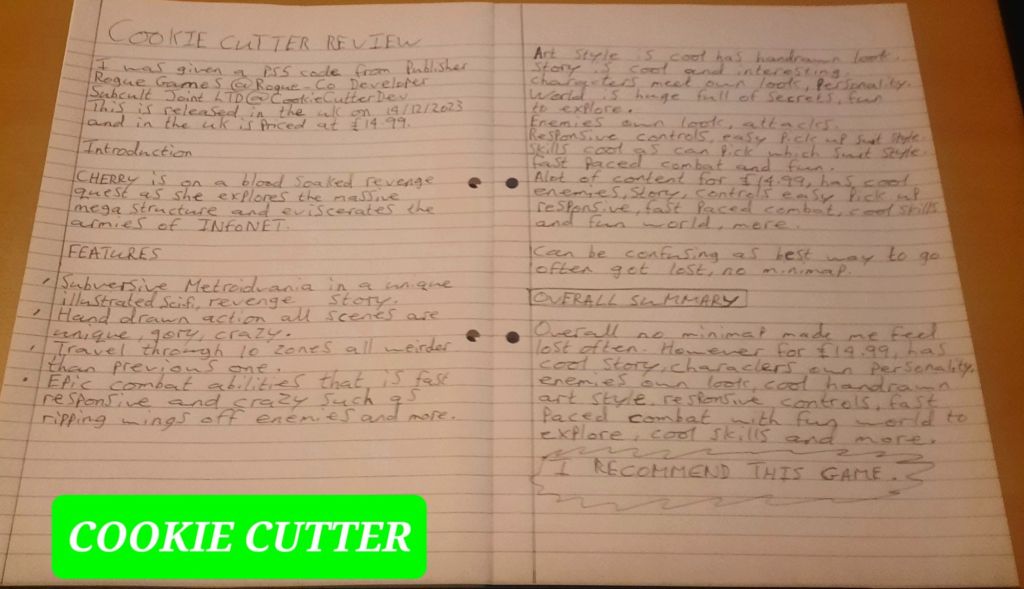 COOKIE CUTTER REVIEW
I was given a PS5 code from Publisher
Rogue Games @Rogue_Co Developer
Subcult Joint LTD @CookieCutterDev
This is released in the uk on 14/12/2023
and in the uk is priced at £14.99.
Introduction
CHERRY is on a blood soaked revenge
quest as she explores the massive
mega structure and eviscerates the
armies of INFONET.
FEATURES
Subversive Metroidvania in a unique
illustrated Scifi, revenge story.
Hand drawn action all scenes are
unique, gory, crazy.
Travel through 10 zones all weirder
than previous one.
Epic combat abilities that is fast
responsive and crazy such as
ripping wings off enemies and more.
Art style is cool has handrawn look.
Story is cool and interesting
characters meet own look, Personality.
World is huge full of secrets, fun
to explore.
Enemies own look, attacks.
Responsive controls, easy pick up suit style.
Skills cool as can pick which suit style.
fast paced combat and fun.
Alot of content for £14.99, has cool
enemies, story, controls easy pick up
responsive, fast paced combat, cool skills
and fun world, more.
Can be confusing as best way to go
often got lost, no minimap.
OVERALL SUMMARY
Overall no minimap made me feel
lost often. However for £14.99, has
cool story, characters own personality.
enemies own look, cool handrawn
art style, responsive controls, fast
paced combat with fun world to
explore, cool skills and more.
I RECOMMEND THIS GAME.
COOKIE CUTTER